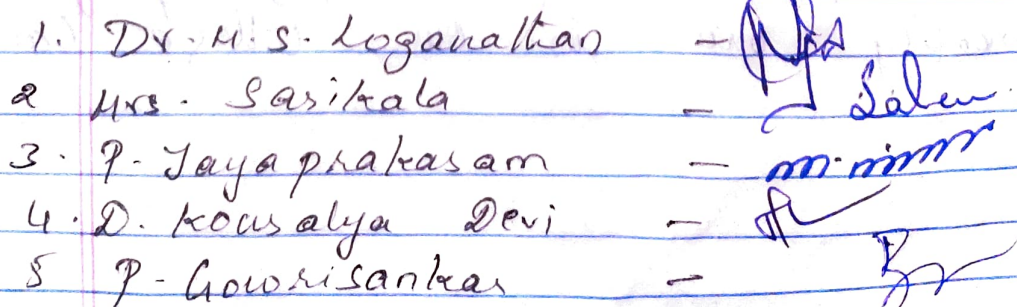 1. Dr. M. S. Loganathan -
2 Mrs. Sasikala -
3. P. Jayaprakasam -
4. D. Kousalya Devi -
5 P. Gowrisankar -